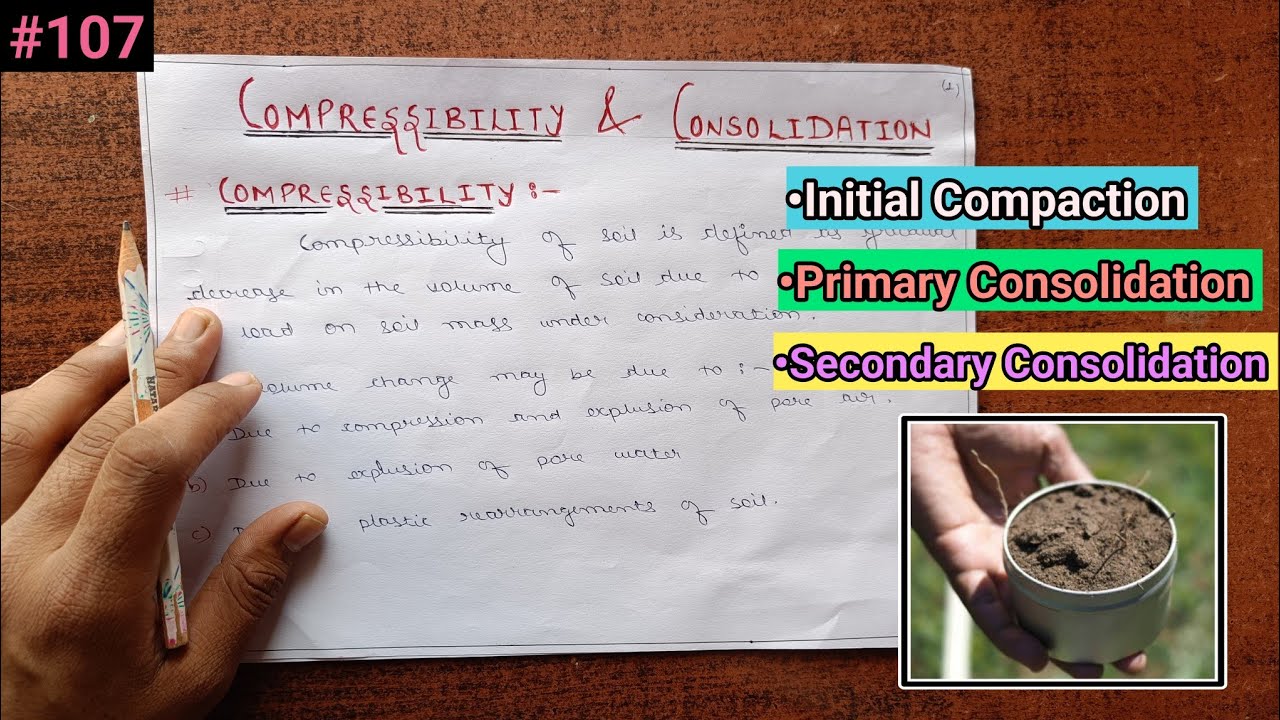 #107
(1)
COMPRESSIBILITY & CONSOLIDATION
# COMPRESSIBILITY :-
Compressibility of soil is defined as gradual
decrease in the volume of soil due to
load on soil mass under consideration.
volume change may be due to :-
Due to compression and explusion of pore air.
b) Due to explusion of pore water
c) plastic rearrangements of soil.
•Initial Compaction
•Primary Consolidation
•Secondary Consolidation